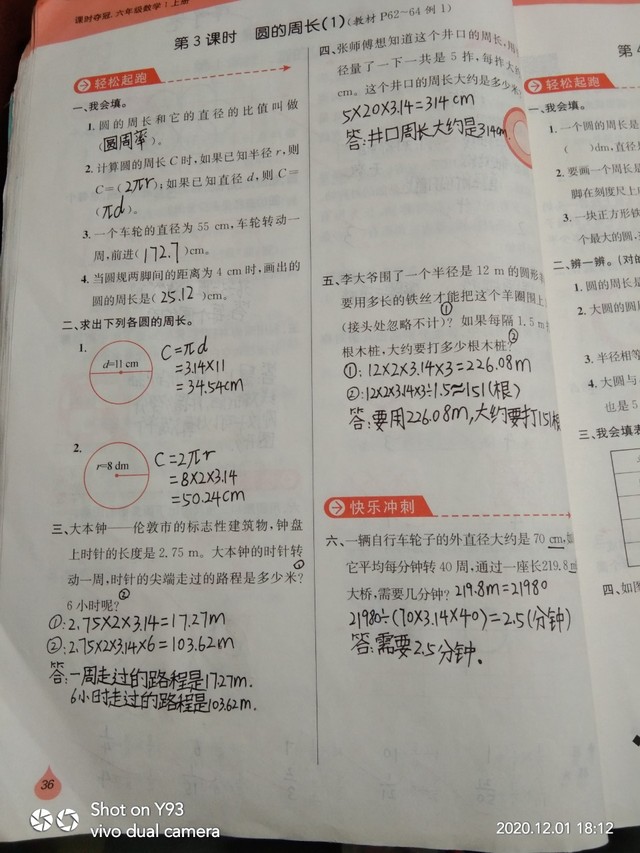 课时夺冠.六年级数学|上册
第3课时 圆的周长(1)(教材P62~64例1)
轻松起跑
一、我会填。
1.圆的周长和它的直径的比值叫做
(圆周率)。
2.计算圆的周长C时,如果已知半径r,则
C=(2πr);如果已知直径d,则C=
(πd)。
3.一个车轮的直径为55 cm,车轮转动一
周,前进(172.7)cm。
4.当圆规两脚间的距离为4 cm时,画出的
圆的周长是(25.12)cm。
二、求出下列各圆的周长。
1.
d=11 cm
C=πd
=3.14×11
=34.54cm
2.
r=8 dm
C=2πr
=8×2×3.14
=50.24cm
三、大本钟——伦敦市的标志性建筑物,钟盘
上时针的长度是2.75 m。大本钟的时针转
动一周,时针的尖端走过的路程是多少米?
①
6小时呢?
②
①:2.75×2×3.14=17.27m
②:2.75×2×3.14×6=103.62m
答:一周走过的路程是17.27m.
6小时走过的路程是103.62m.
36
四、张师傅想知道这个井口的周长,用
径量了一下一共是5拃,每拃大约
cm。这个井口的周长大约是多少米
5×20×3.14=314cm
答:井口周长大约是314cm.
五、李大爷围了一个半径是12 m的圆形
要用多长的铁丝才能把这个羊圈围上
①
(接头处忽略不计)?如果每隔1.5 m
根木桩,大约要打多少根木桩?
②
①:12×2×3.14×3=226.08m
②:12×2×3.14×3÷1.5≈151(根)
答:要用226.08m,大约要打151根
快乐冲刺
六、一辆自行车轮子的外直径大约是70 cm,
它平均每分钟转40周,通过一座长219.8
大桥,需要几分钟?219.8m=21980
21980÷(70×3.14×40)=2.5(分钟)
答:需要2.5分钟.
第4
轻松起跑
一、我会填。
1.一个圆的周长是
( )dm,直径
2.要画一个周长是
脚在刻度尺上
3.一块正方形铁
个最大的圆,
二、辨一辨。(对的
1.圆的周长是
2.大圆的圆
3.半径相等
4.大圆与
也是5
三、我会填表
四、如图
Shot on Y93
vivo dual camera
2020.12.01 18:12